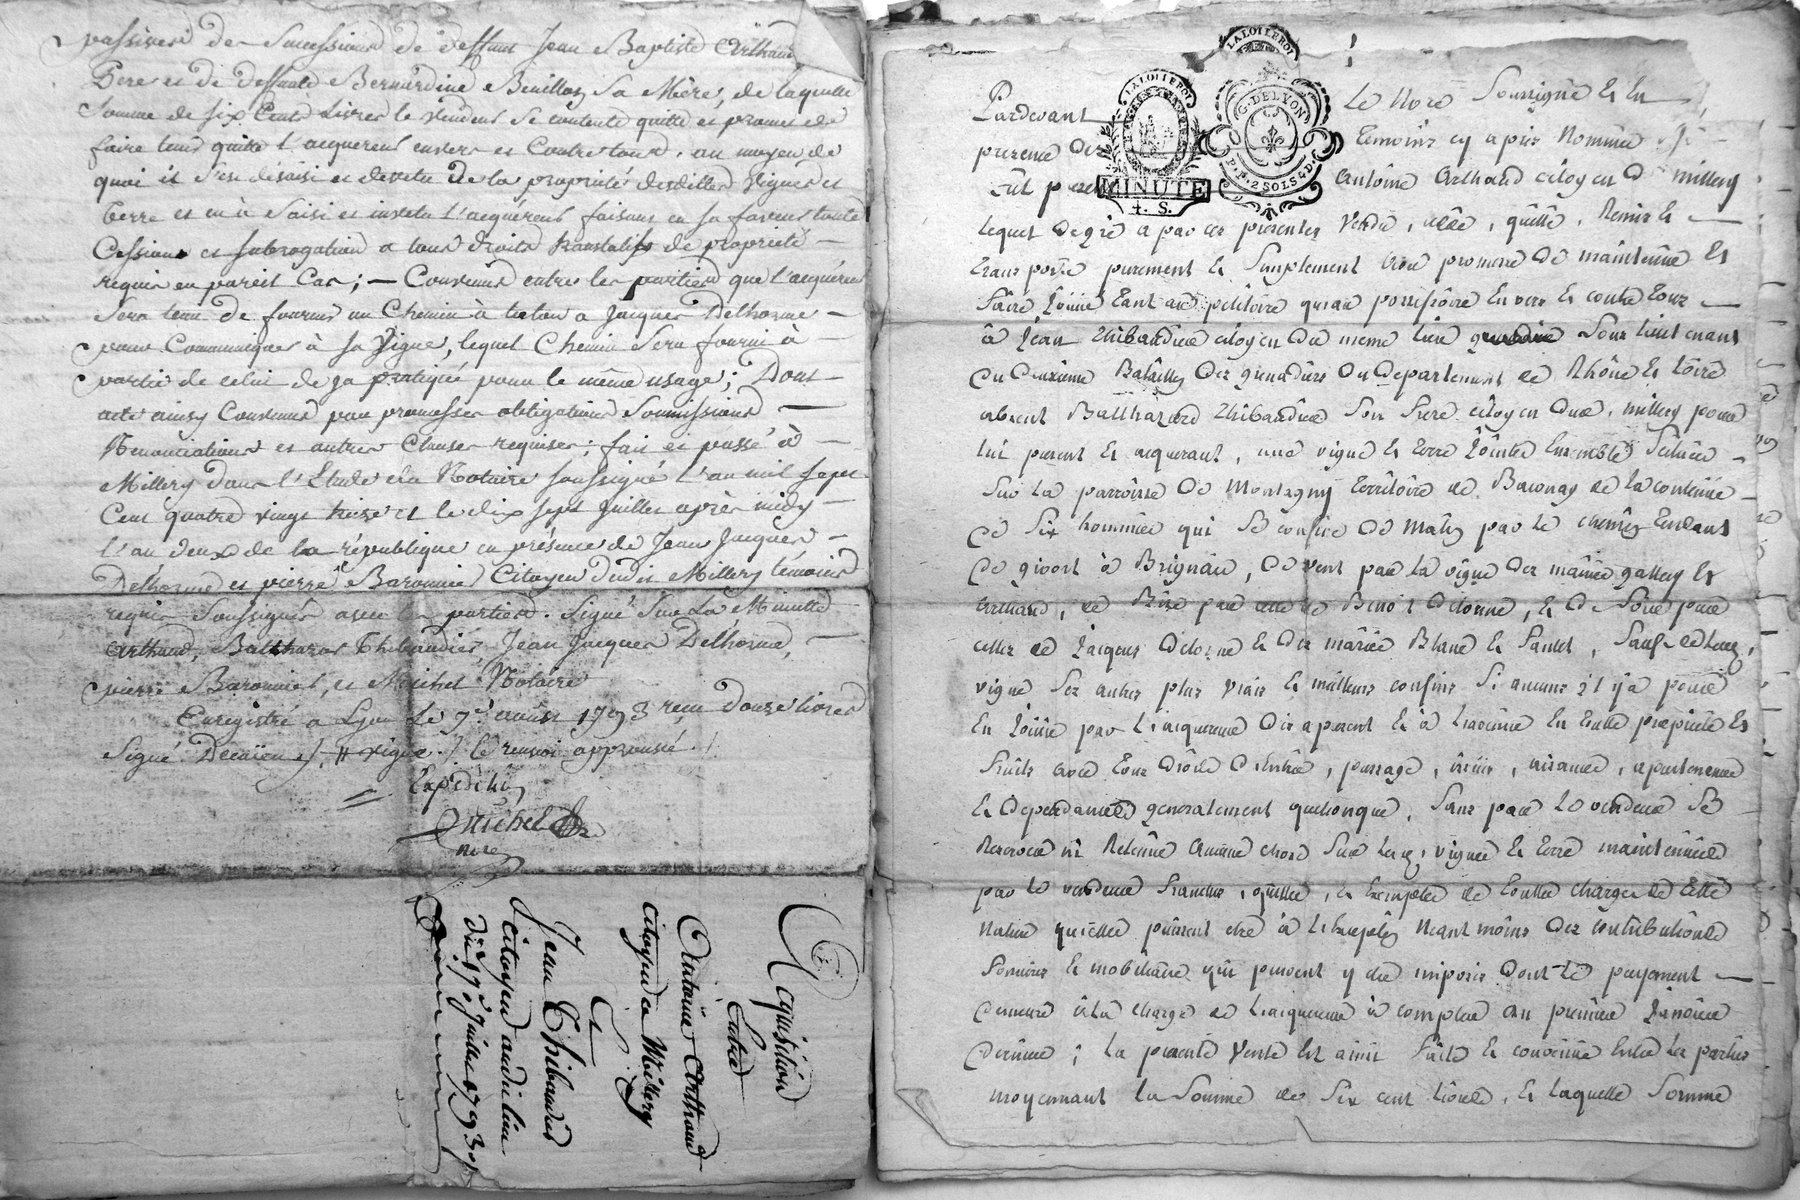 passives des successions de deffunt Jean Baptiste Arthaud
Pere et de deffunte Bernardine Bouillon Sa Mère, de laquelle
Somme de six Cents Livres le vendeur se contente quitte et promet de
faire tenir quitte l'acquereur envers et Contre tous, au moyen de
quoi il s'est désaisi et devetu de la propriété desdittes vignes et
terre et en à Saisi et investu l'acquéreur faisant en sa faveur toute
Cessions et subrogation a tous droits translatifs de propriété —
requis en pareil Cas; — Convenus entre les parties que l'acquéreur
Sera tenu de fournir un Chemin à talon a Jacques Delhorme —
pour Communiquer à sa Vigne, lequel Chemin Sera fourni à —
partir de celui deja pratiqué pour le même usage; Dont —
acte ainsy Convenus par promesses obligations Soumissions —
Renonciations et autres Clauses requises; fait et passé à —
Millery dans l'Etude du Notaire soussigné l'an mil sept
Cent quatre vingt treize et le dix sept Juillet après midy —
l'an deux de la république en présence de Jean Jacques —
Delhorme et pierre Baronnier Citoyens dudit Millery témoins
requis Soussignés avec les parties. Signé Sur La Minutte
Arthaud, Balthazar Thibaudier, Jean Jacques Delhorme, —
pierre Baronnier, et Michel Notaire
Enregistré a Lyon Le 7 1793 reçu douze livres
Signé vigne le renvoi approuvé.
Expédition
Michel
nore
Aquisition
Entre
Antoine Arthaud
citoyen de Millery
Et
Jean Thibaudier
citoyen dudit lieu
du 17e Juillet 1793
LA LOI LE ROI
LA LOI LE ROI
MINUTE
4. S.
G. DE LYON
P. P. 2 SOLS 4 D.
Pardevant Le Nore Soussigné Et En
presence Des Temoins cy apres Nommés
Fut present Antoine Arthaud citoyen De millery
Lequel De gré a par ces presentes Vendu, cédé, quitté, Remis Et —
transporté purement Et Simplement avec promesse De maintenüe Et
faire Joüir tant au petitoire qu'au possessoire Envers Et contre tous —
à Jean Thibaudier citoyen Du meme lieu Sous lieutenant
Du Deuxieme Bataillon Des grenadiers Du Departement de Rhône Et Loire
absent Balthazard Thibaudier Son frere citoyen Dud. millery pour
lui present Et acquerant, une vigne Et terre Jointe Ensemble Située —
Sur La parroisse De Montagny territoire de Baconay de la contenüe —
De Six hommées qui Se confine De Matin par le chemin tendant
De givort à Brignais, De vent par la vigne Des mariés gallery Et
Arthaud, de Bize par celle de Benoit Delorme, Et De Soir par
celles de Jacques Delorme Et Des mariés Blanc Et Pautet, Sauf de lad.
vigne Ses autres plus vrais Et meilleurs confins Si aucuns il y a pour
En Joüir par L'acquereur Dès a present Et à L'avenir En toute propriété Et
fruits avec tous Droits D'entrée, passage, aisance, apartenance
Et Dependances generalement quelconque, Sans par Le vendeur Se
Reserver ni Retenir aucune chose Sur lesd. vigne Et terre maintenües
par le vendeur franches, quittes, Et Exemptes de toutte charge de cette
Nature qu'elles puissent etre à L'exception Neant moins Des contributions
foncieres Et mobiliaire qui peuvent y etre imposés Dont le payement —
Demeure à La charge de L'acquereur à compter Du premier Janvier
Dernier; La presente Vente Est ainsi Faite Et convenüe Entre Les parties
moyennant La Somme de Six cent livres, Et laquelle Somme